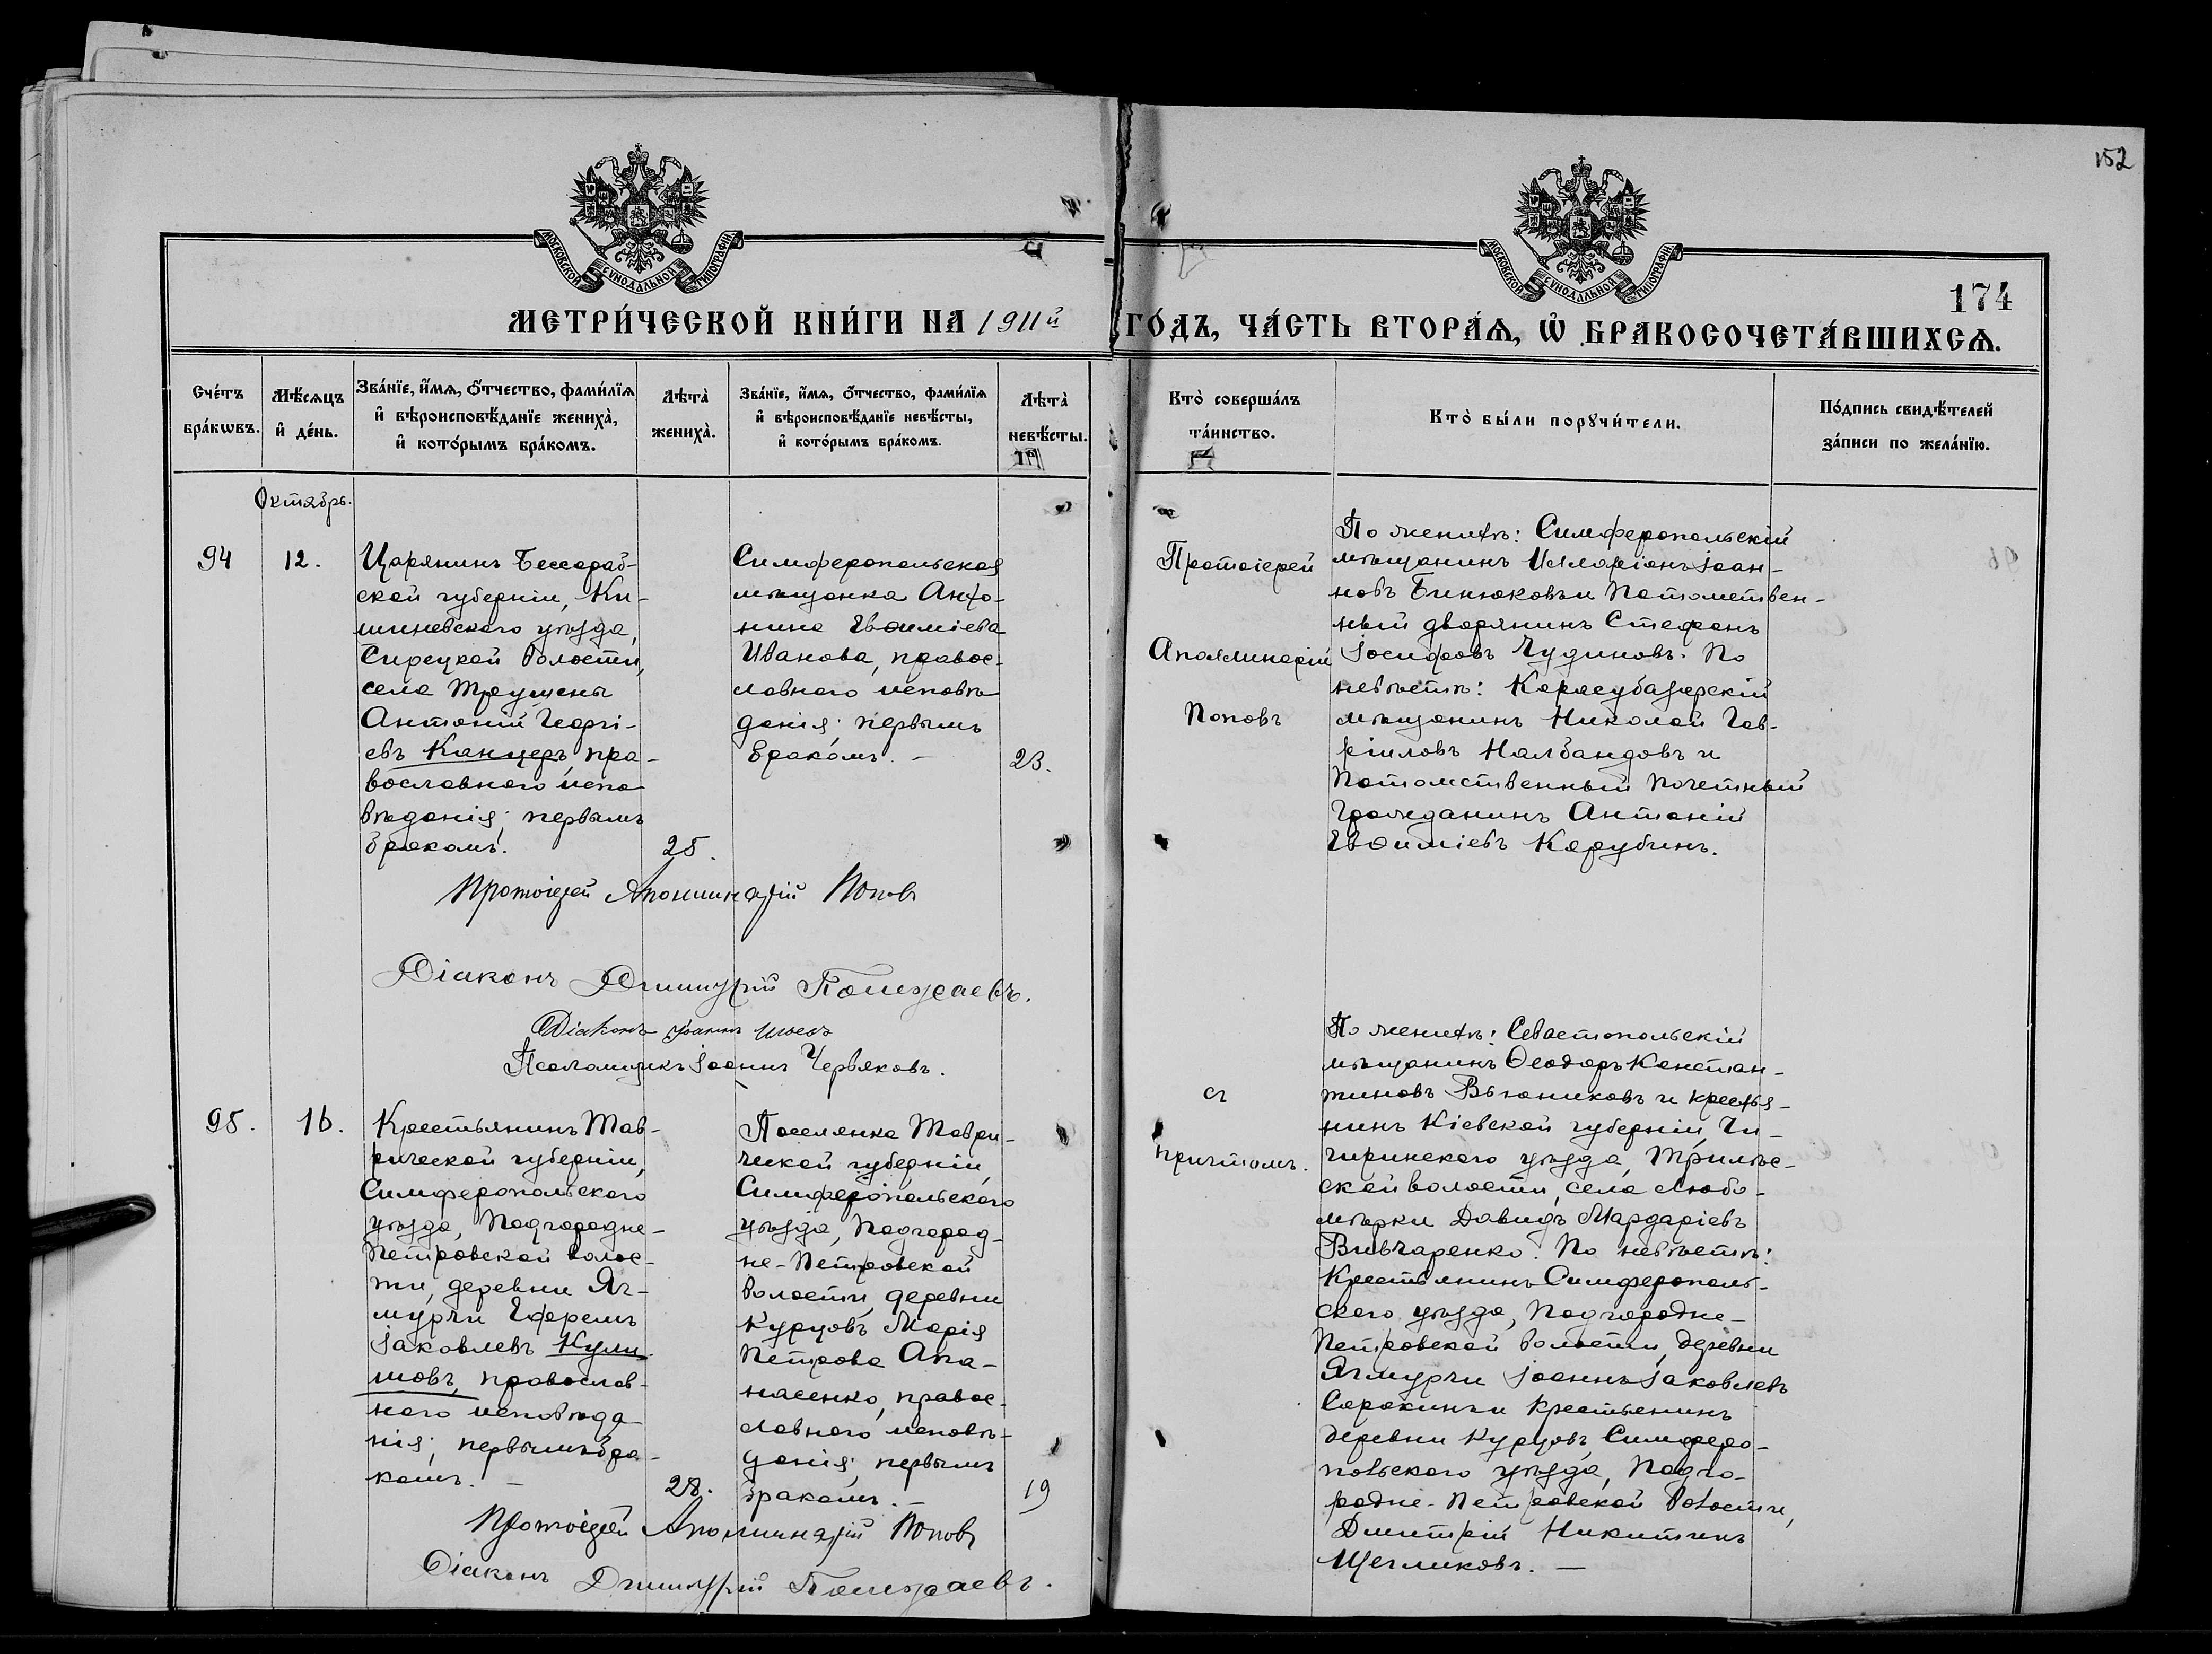 152
МОСКОВСКОЙ СѴНОДАЛЬНОЙ ТИПОГРАФІИ
МОСКОВСКОЙ СѴНОДАЛЬНОЙ ТИПОГРАФІИ
174
МЕТРИ́ЧЕСКОЙ КНИ́ГИ НА 1911й ГО́ДЪ, ЧА́СТЬ ВТОРА́Ѧ, Ѡ҆ БРАКОСОЧЕТА́ВШИХСѦ.
Сче́тъ
бра́кѡвъ.
Мѣ́сѧцъ
и҆ де́нь.
Зва́нїе, и҆́мѧ, ѻ҆́тчество, фами́лїѧ
и҆ вѣроисповѣ́данїе жениха̀,
и҆ кото́рымъ бра́комъ.
Лѣта̀
жениха̀.
Зва́нїе, и҆́мѧ, ѻ҆́тчество, фами́лїѧ
и҆ вѣроисповѣ́данїе невѣ́сты,
и҆ кото́рымъ бра́комъ.
Лѣта̀
невѣ́сты.
Кто̀ соверша́лъ
та́инство.
Кто̀ бы́ли порꙋчи́тели.
По́дпись свидѣ́телей
за́писи по жела́нїю.
Октябрь.
94
12.
Царянинъ Бессараб-
ской губерніи, Ки-
шиневскаго уѣзда,
Сирецкой волости,
села Трушены
Антоній Георгі-
евъ Канцеръ, пра-
вославнаго испо-
вѣданія; первымъ
бракомъ.
25.
Симферопольская
мѣщанка Анто-
нина Евѳиміева
Иванова, правос-
лавнаго исповѣ-
данія; первымъ
бракомъ. –
23.
Протоіерей
Аполлинарій
Поповъ
По женихѣ: Симферопольскій
мѣщанинъ Илларіонъ Іоан-
новъ Бинюковъ и Потомствен-
ный дворянинъ Стефанъ
Іосифовъ Чудиновъ. По
невѣстѣ: Карасубазарскій
мѣщанинъ Николай Гав-
ріиловъ Налбандовъ и
Потомственный Почетный
Гражданинъ Антоній
Евѳиміевъ Карубинъ.
Протоіерей Аполлинарій Поповъ
Діаконъ Димитрій
Діаконъ Іоаннъ
Псаломщикъ Іоаннъ Червяковъ.
95.
16.
Крестьянинъ Тав-
рической губерніи,
Симферопольскаго
уѣзда, Подгородне-
Петровской волос-
ти, деревни Яг-
мурчи Ефремъ
Іаковлевъ Кули-
шовъ, православ-
наго исповѣда-
нія; первымъ бра-
комъ. –
28.
Поселянка Таври-
ческой губерніи,
Симферопольскаго
уѣзда, Подгород-
не-Петровской
волости, деревни
Курцовъ Марія
Петрова Апа-
насенко, правос-
лавнаго исповѣ-
данія; первымъ
бракомъ. –
19
съ
причтомъ.
По женихѣ: Севастопольскій
мѣщанинъ Ѳеодоръ Констан-
тиновъ Вьюниковъ и крестья-
нинъ Кіевской губерніи, Чи-
гиринскаго уѣзда, Трилѣс-
ской волости, села Любо-
мирки Давидъ Мардаріевъ
Вивчаренко. По невѣстѣ:
Крестьянинъ Симферополь-
скаго уѣзда, Подгородне-
Петровской волости, деревни
Ягмурчи Іоаннъ Іаковлевъ
Сорокинъ и крестьянинъ
деревни Курцовъ, Симферо-
польскаго уѣзда, Подго-
родне-Петровской волости,
Дмитрій Никитинъ
Щегликовъ. –
Протоіерей Аполлинарій Поповъ
Діаконъ Димитрій